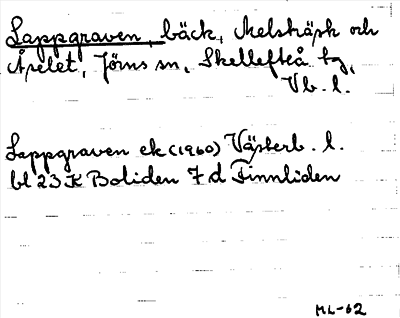 Lappgraven, bäck, Melsträsk och
Åselet, Jörns sn, Skellefteå tg,
Vb. l.
Lappgraven ek (1960) Västerb. l.
bl 23 K Boliden 7 d Finnliden
ML-62